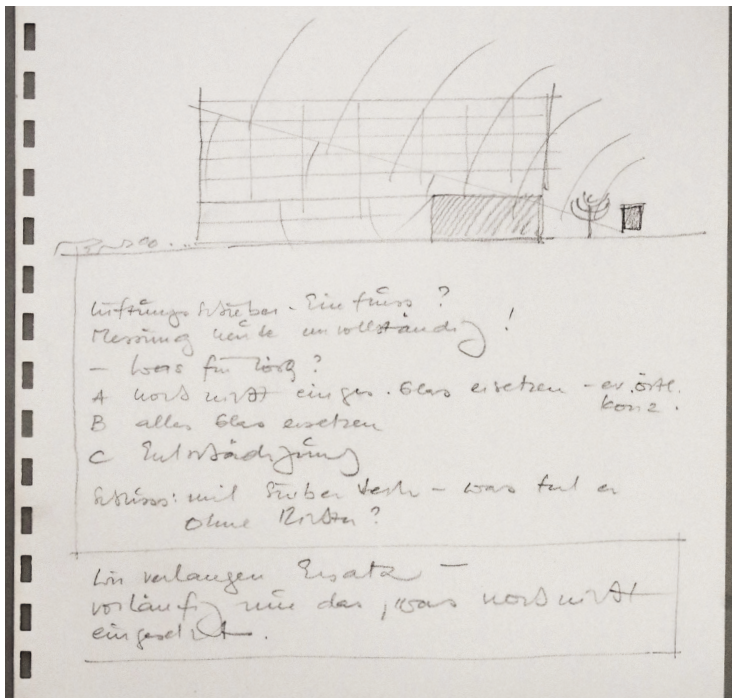 Lüftungsschieber - Einfluss ?
Messung heute unvollständig !
- was für Lösg ?
A noch nicht einges. Glas ersetzen - ev. örtl.
konz.
B alles Glas ersetzen
C Entschädigung
Schluss: mit - was tut er
ohne Richter ?
Wir verlangen Ersatz -
vorläufig nur das, was noch nicht
eingesetzt.